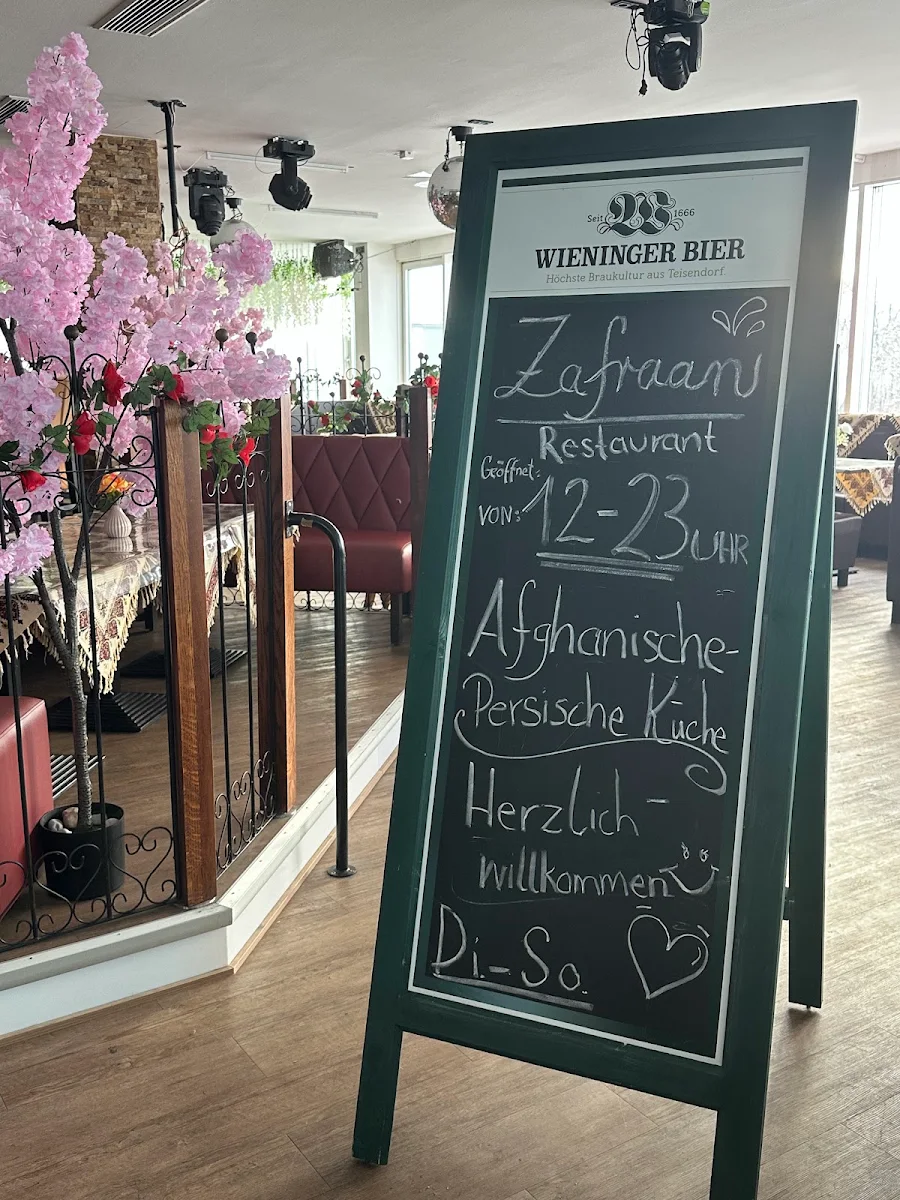 Seit W 1666
WIENINGER BIER
Höchste Braukultur aus Teisendorf.
Zafraan
Restaurant
Geöffnet:
VON: 12-23 UHR
Afghanische-
Persische Küche
Herzlich-
willkommen
Di.-So.